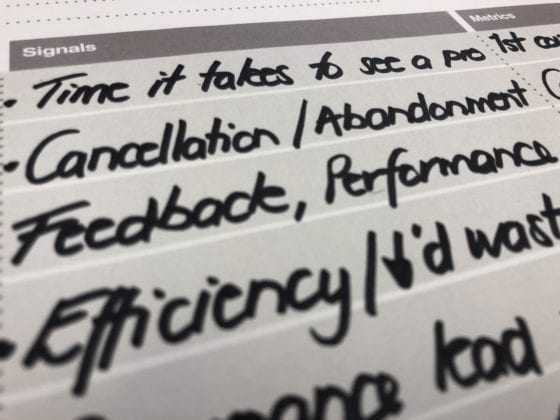 Signals Metrics
• Time it takes to see a pro 1st
• Cancellation / Abandonment
Feedback, Performance
• Efficiency / ↓'d wast
lead